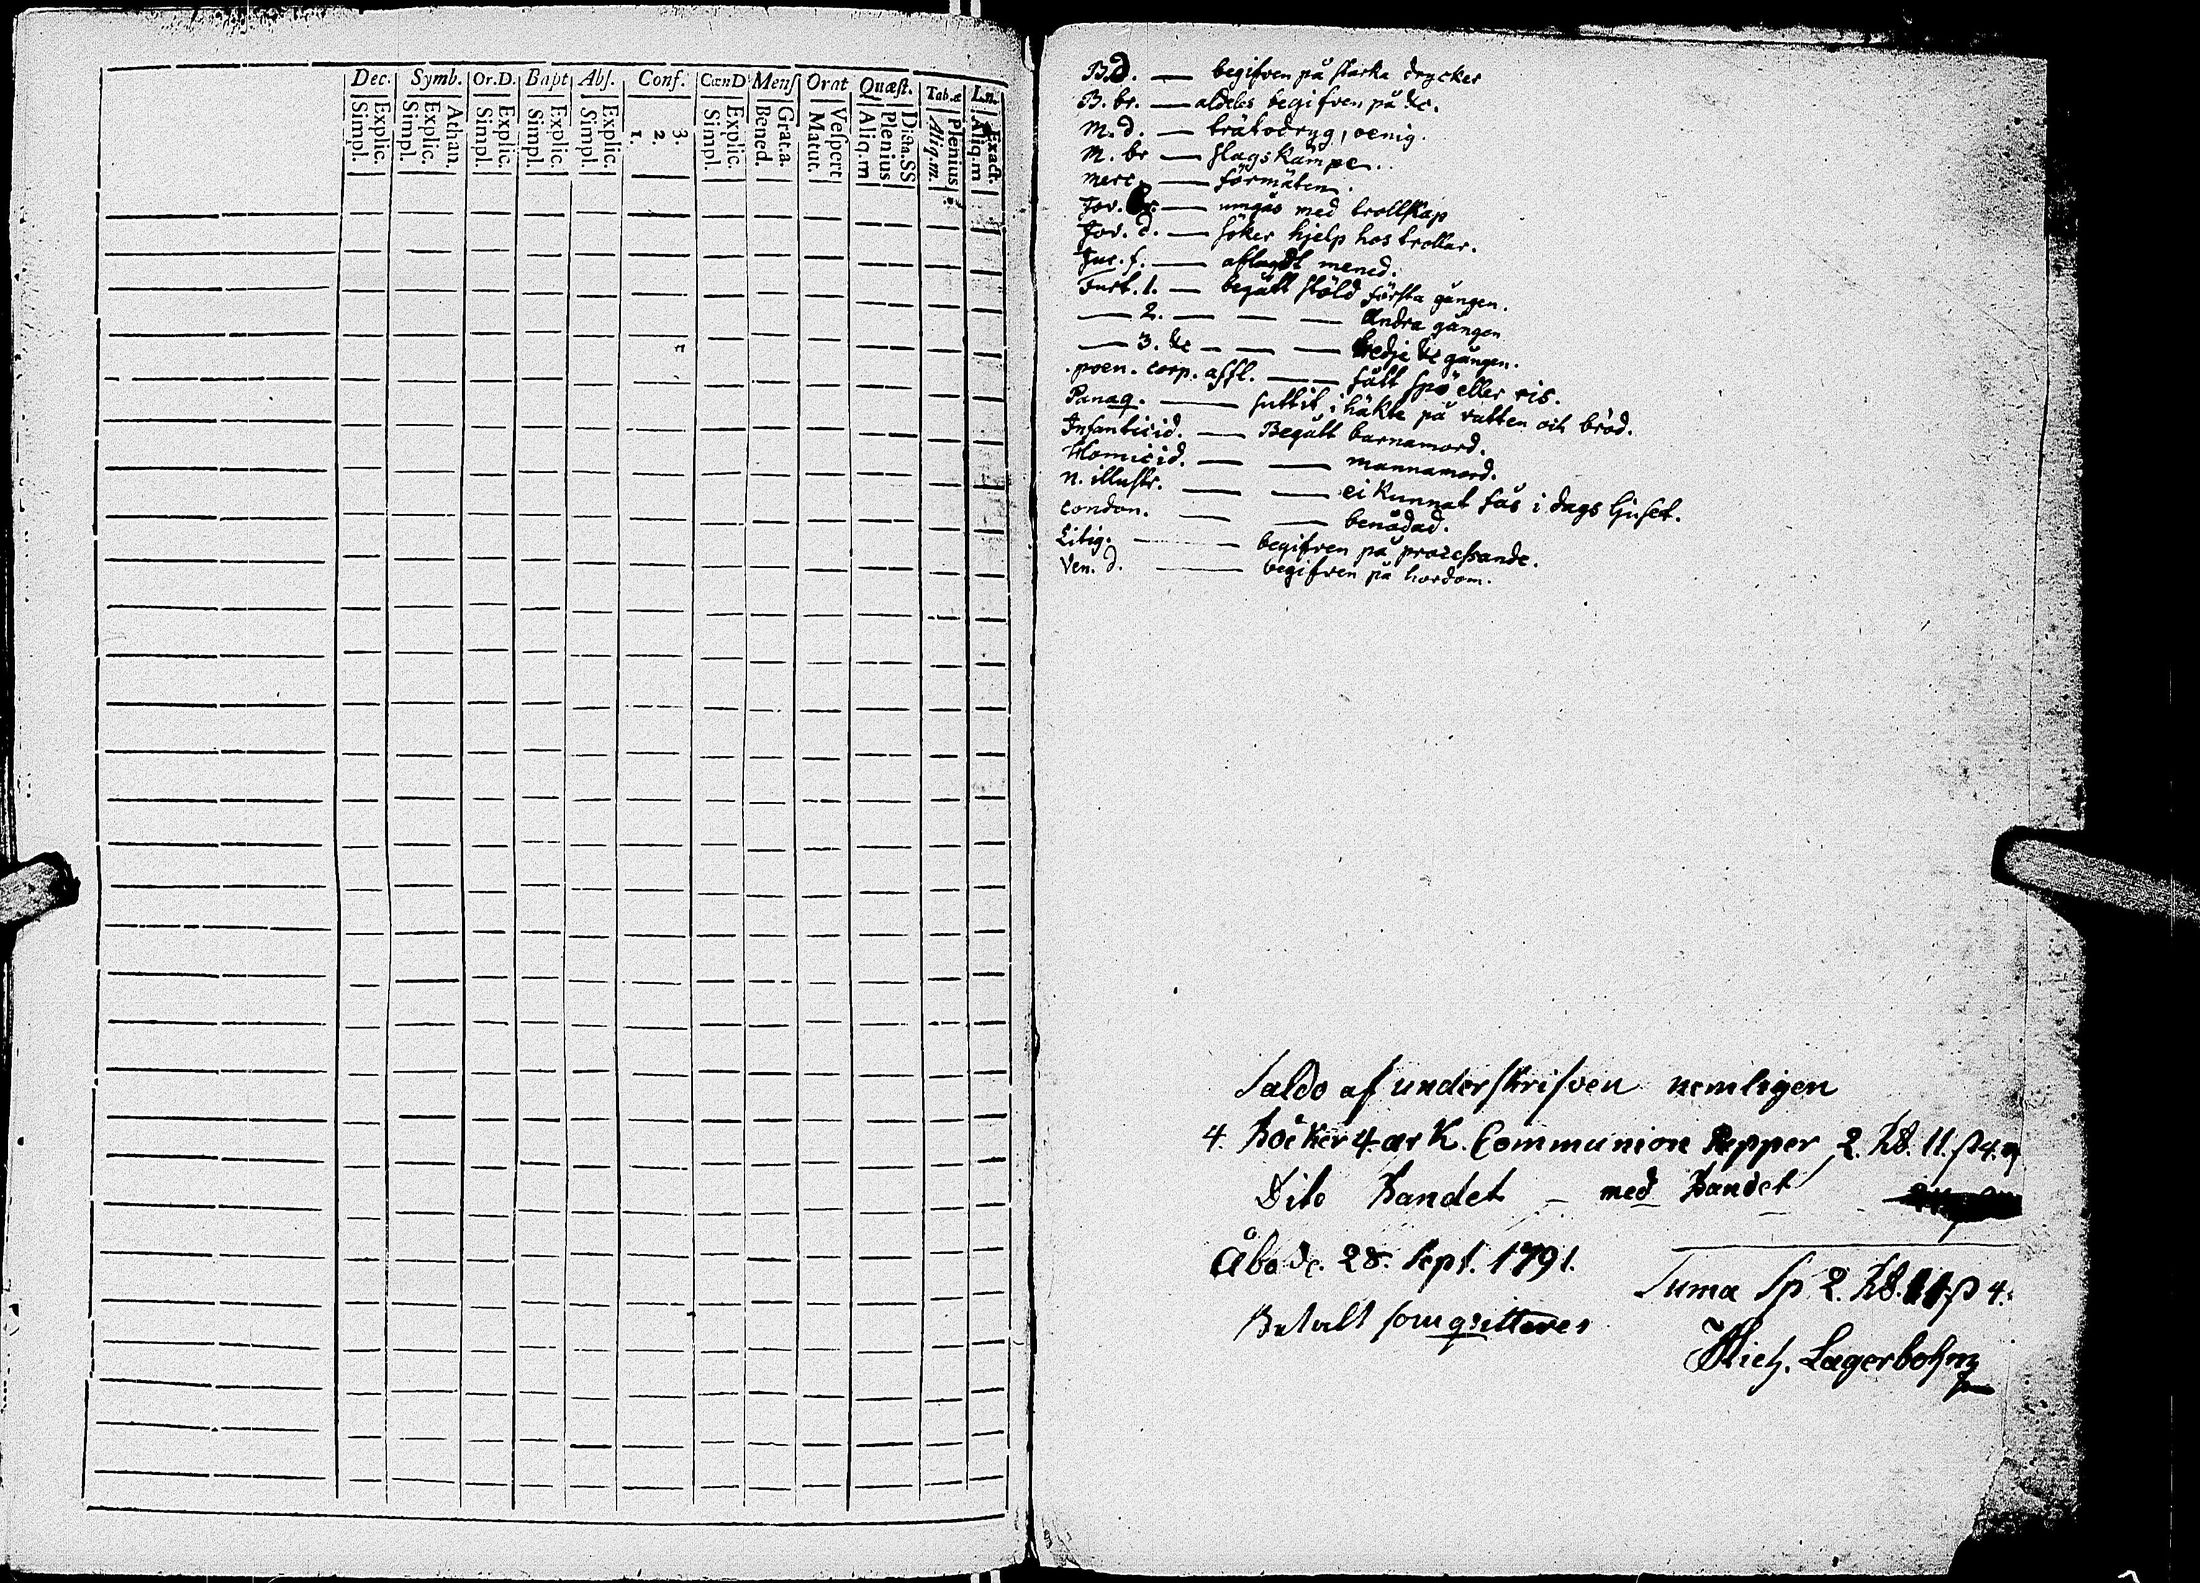 Dec. Symb. Or.D. Bapt Abs. Conf. CœnD Mens Orat Quæst. Tab.æ L.n.
Simpl. Explic. Simpl. Explic. Athan. Simpl. Explic. Simpl Explic. Simpl. Explic. 1. 2. 3. Simpl. Explic. Bened. Grat.a. Matut. Vespert Aliq.m Plenius Dicta.SS Aliq.m. Plenius Aliq.m Exact.
B.d. — begifven på starka drycker
B. br. — aldeles begifven på &c.
M. d. — trätodryg, oenig.
M. br — slagskämpe.
merc. — förmäten.
Jov. — umgås med trollskap
Jov. d. — söker hjelp hos trollar.
Jur. f. — aflagdt mened.
Furt. 1. — begått stöld första gången.
— 2. — — — andra gången
— 3. &c — — — tredje &c gången.
poen. corp. affl. — — fått spö eller ris.
Panaq. — suttit i häkte på vatten och bröd.
Infanticid. — Begått barnamord.
Homicid. — — mannamord.
n. illustr. — — ei kunnat fås i dags ljuset.
condon. — — benådad.
Litig. — begifven på processande.
Ven. d. — begifven på hordom.
Saldo af underskrifven nemligen
4. Böcker 4. ark. Communion Papper 2. 11. 4.
Dito bandet — med bandet
Åbo d. 28. Sept. 1791.
Suma Sp 2. 11 4.
Betalt som qvitteres
Mich. Lagerbohm